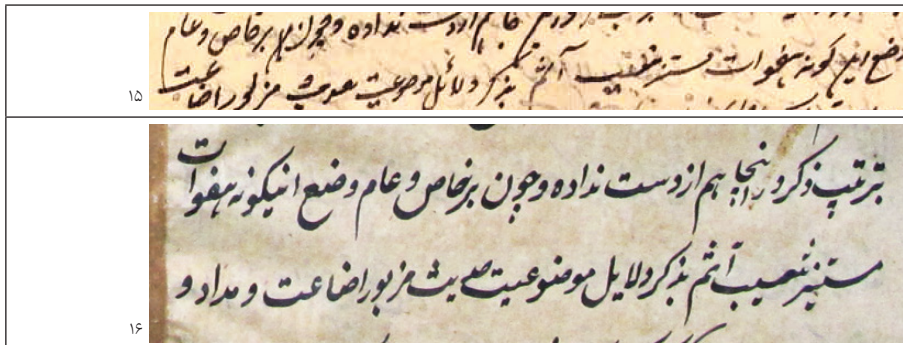 نداده و چون بر خاص و عام
وضع این گونه هفوات آثم بذکر دلائل موضوعیت حدیث مزبور اضاعت
۱۵
ترتیب ذکر در اینجا هم از دست نداده و چون بر خاص و عام وضع اینگونه هفوات
آثم بذکر دلایل موضوعیت حدیث مزبور اضاعت و مداد و
۱۶